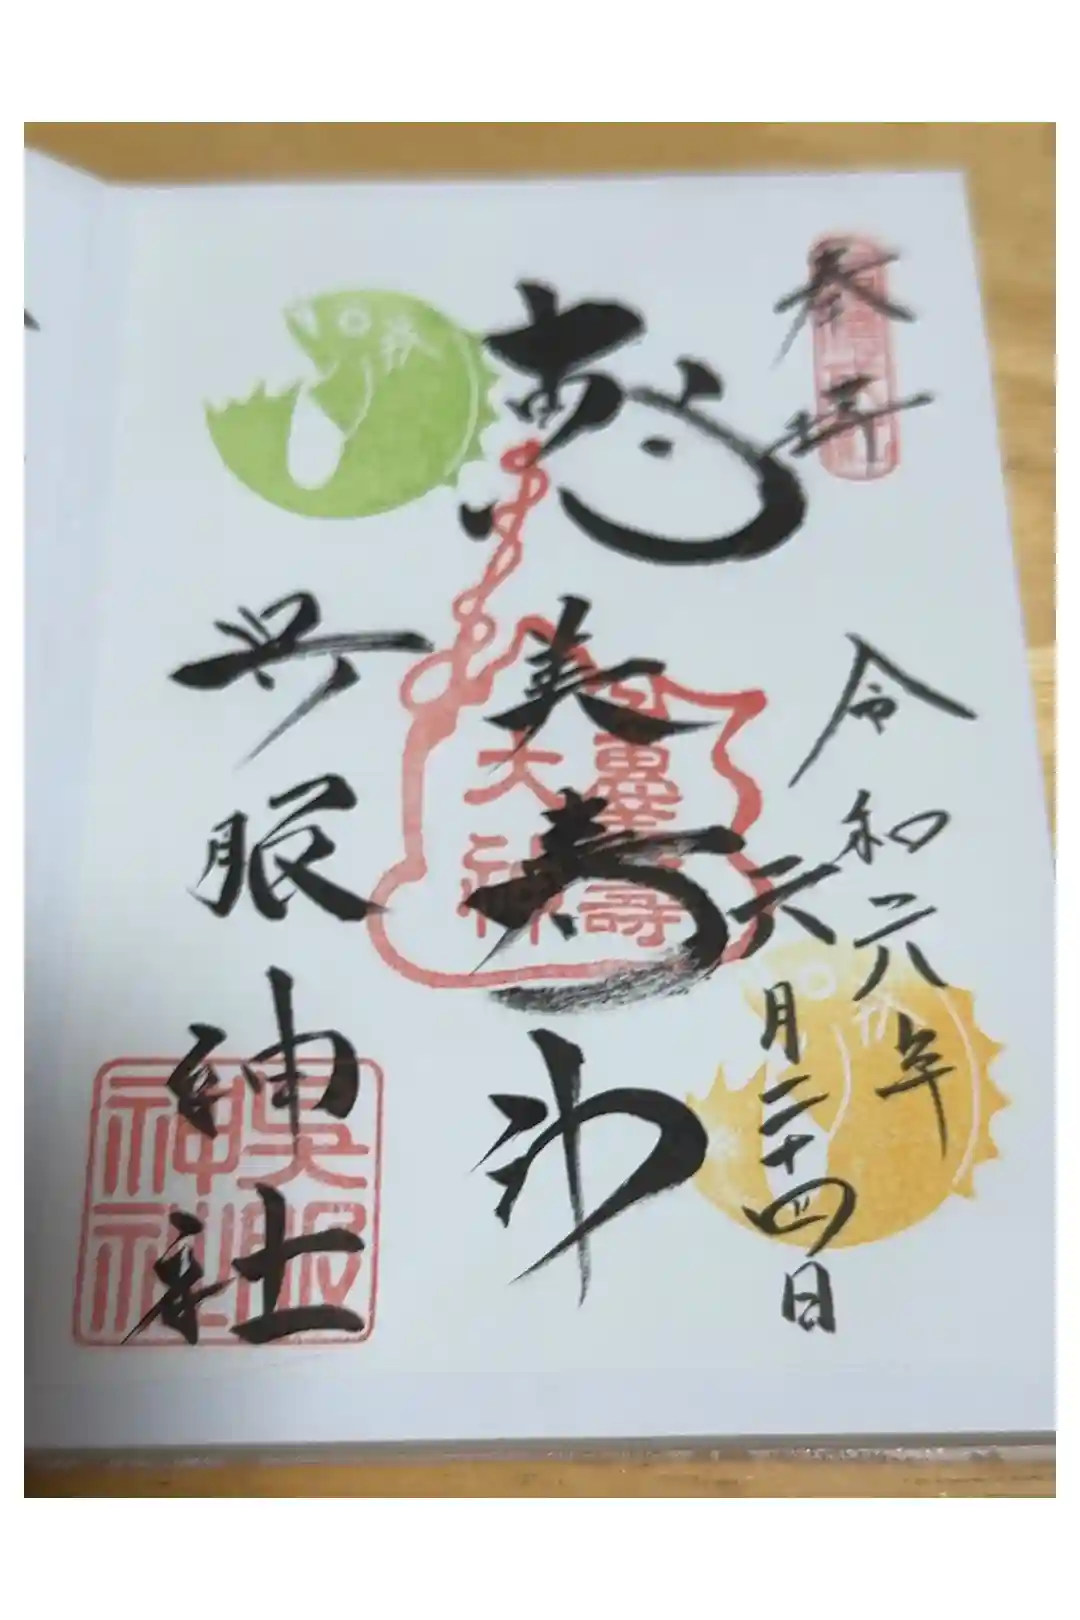 奉拝
令和六年
六月二十四日
恵美寿神
惠美壽
大神
呉服神社
呉服
神社